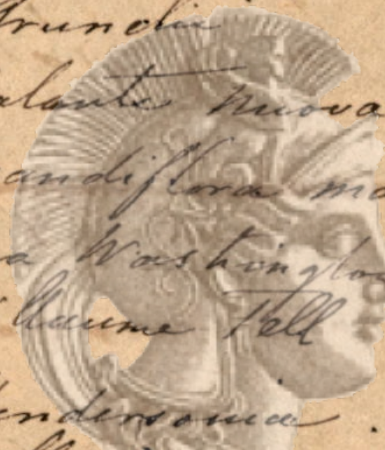 alante nuova
andiflora ma
a Washington
llaume Tell
endersonia.